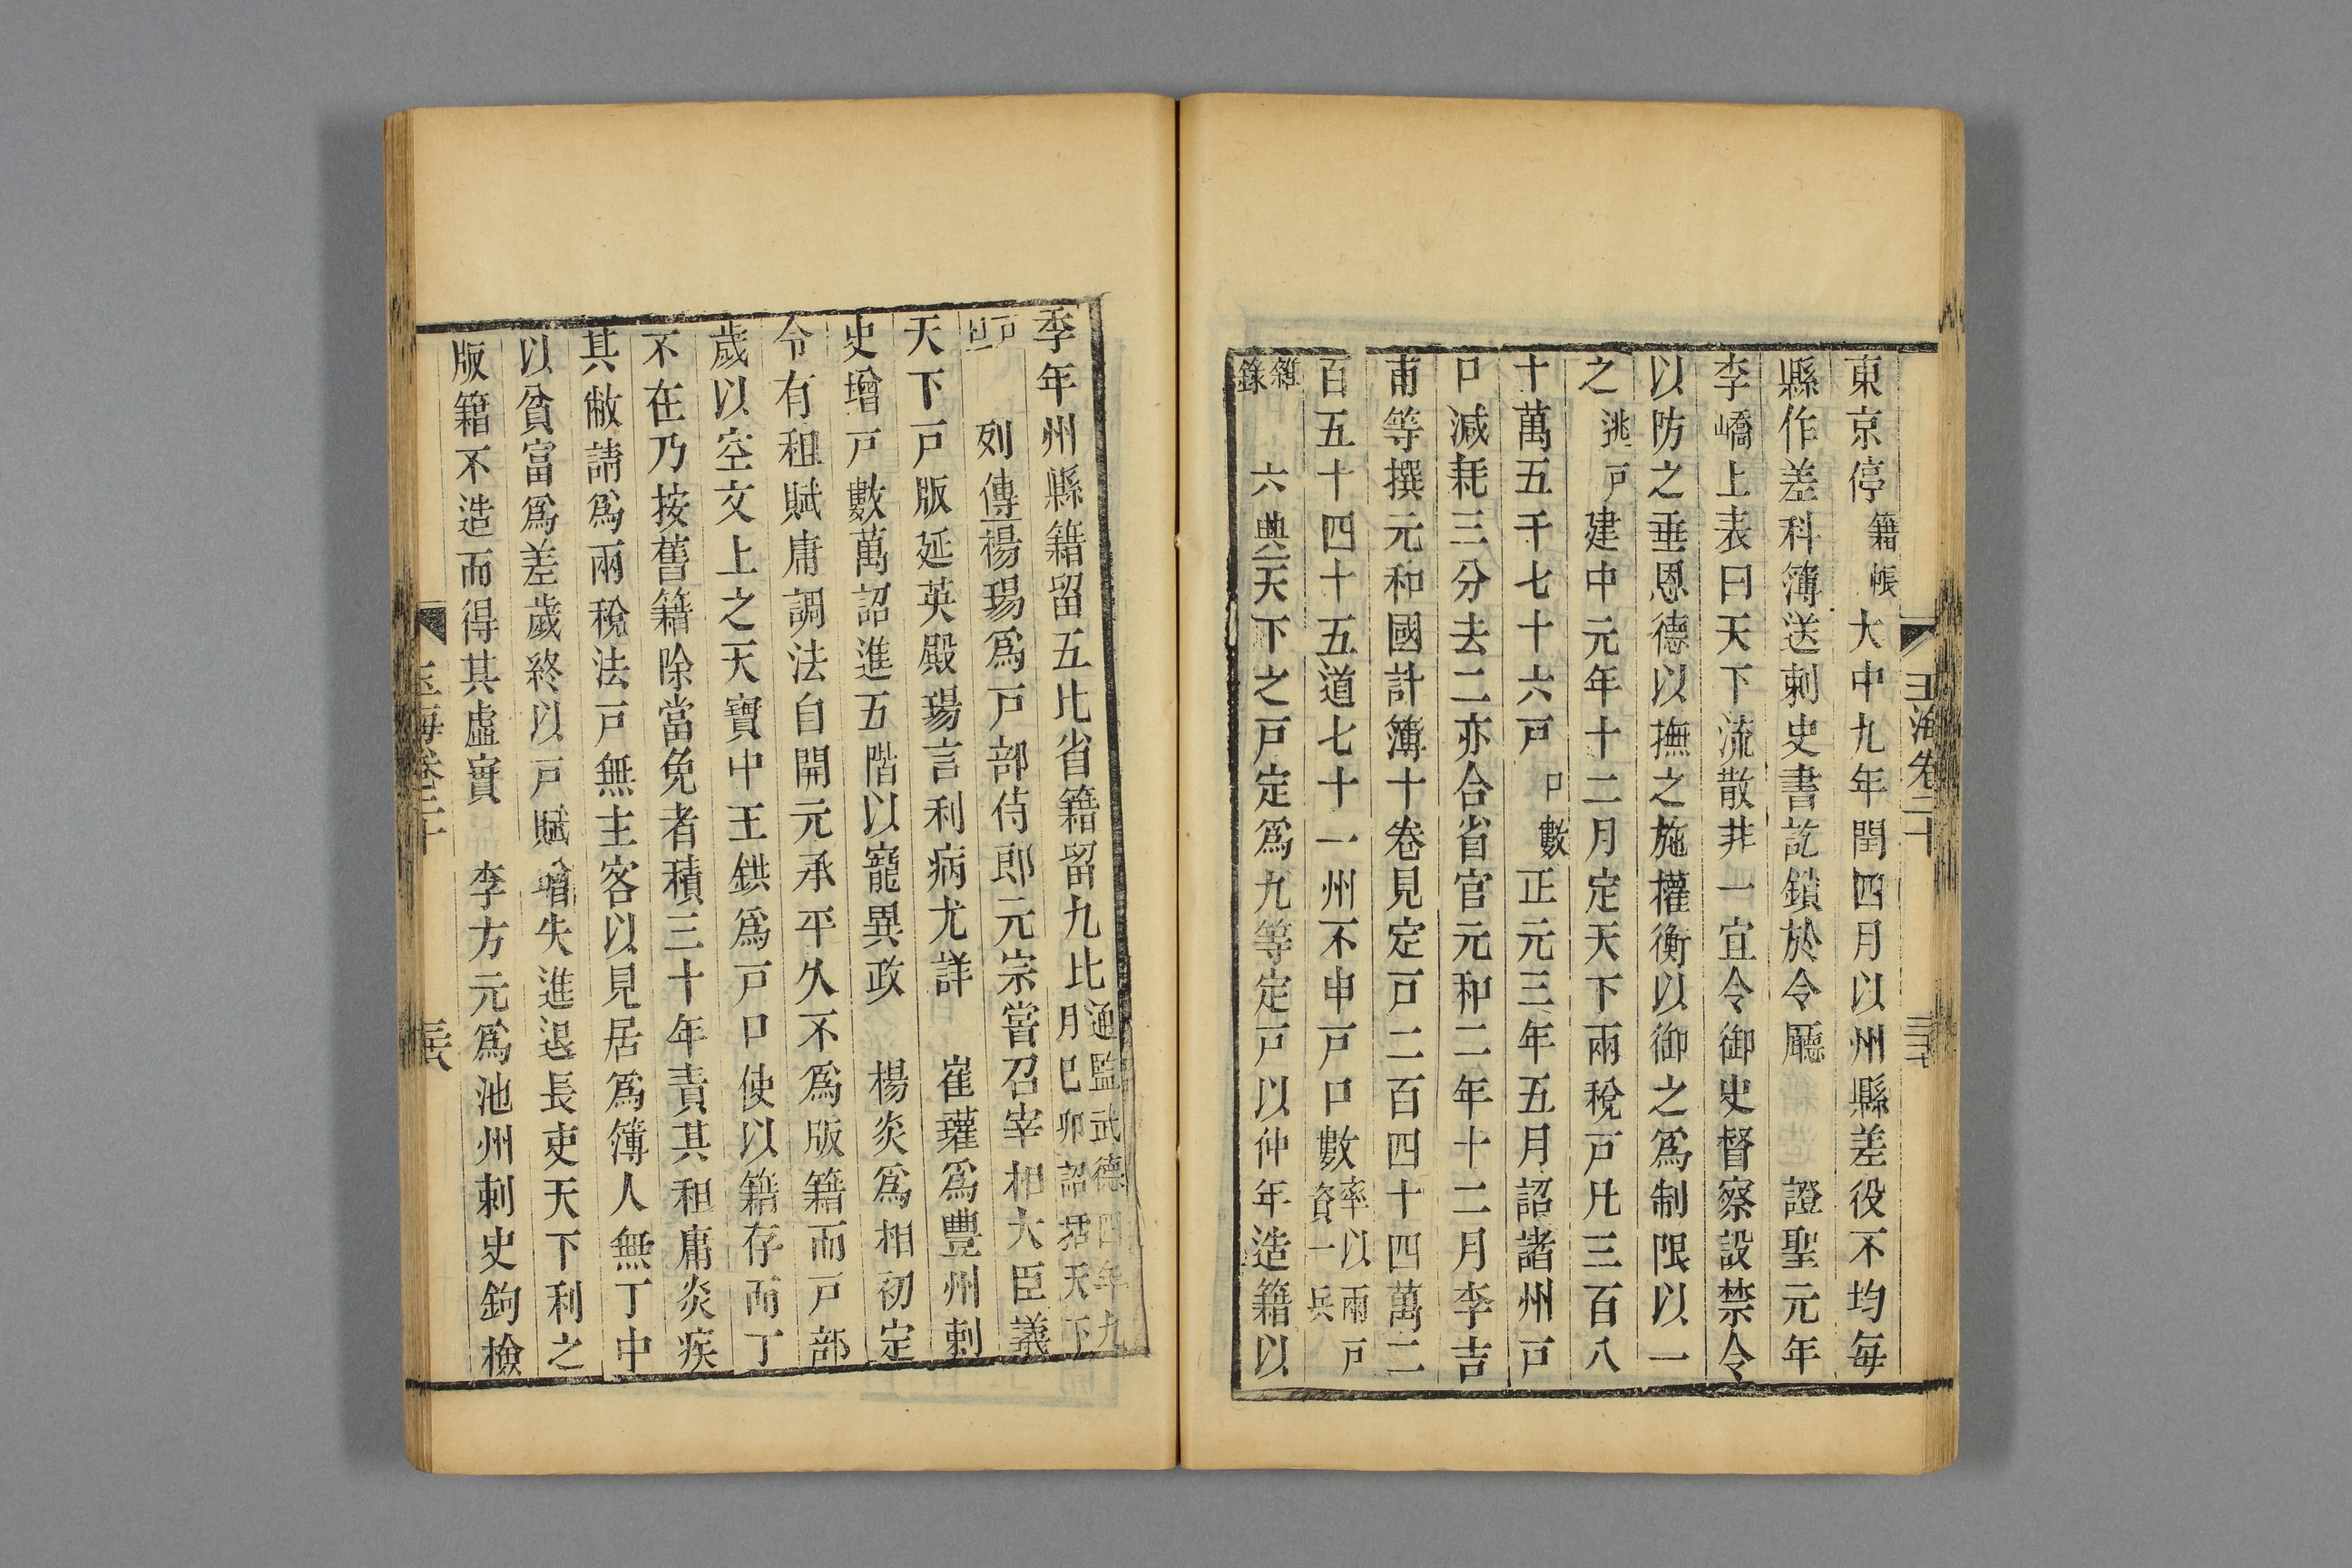 東京停籍帳大中九年閏四月以州縣差役不均每
縣作差科簿送刺史書訖鎖於令廳　證聖元年
李嶠上表曰天下流散非一宜令御史督察設禁令
以防之垂恩德以撫之施權衡以御之爲制限以一
之逃戸建中元年十二月定天下兩稅戸凡三百八
十萬五千七十六戸口數正元三年五月詔諸州戸
口減耗三分去二亦合省官元和二年十二月李吉
甫等撰元和國計簿十卷見定戸二百四十四萬二
百五十四十五道七十一州不申戸口數率以兩戸資一兵
雜錄　六典天下之戸定爲九等定戸以仲年造籍以
季年州縣籍留五比省籍留九比通監武德四年九月巳卯詔括天下
戸口　列傳楊瑒爲戸部侍郎元宗嘗召宰相大臣議
天下戸版延英殿瑒言利病尤詳　崔瓘爲豐州刺
史增戸數萬詔進五階以寵異政　楊炎爲相初定
令有租賦庸調法自開元承平久不爲版籍而戸部
歲以空文上之天寶中王鉷爲戸口使以籍存而丁
不在乃按舊籍除當免者積三十年責其租庸炎疾
其敝請爲兩稅法戸無主客以見居爲簿人無丁中
以貧富爲差歲終以戸賦增失進退長吏天下利之
版籍不造而得其虛實　李方元爲池州刺史鉤檢
玉海卷二十